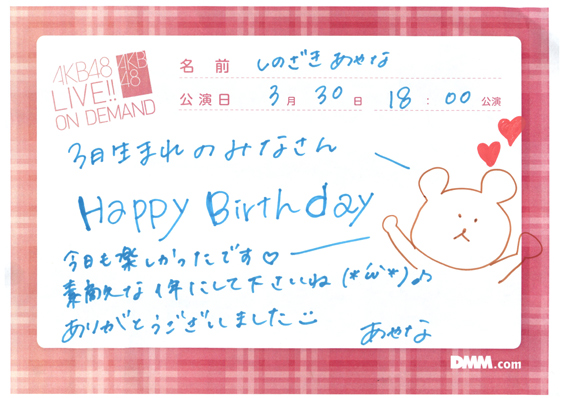 AKB48
LIVE!!
ON DEMAND
AKB
48
名 前 しのざき あやな
公演日 3月 30日 18:00 公演
3月生まれの みなさん
Happy Birthday
今日も楽しかったです♡
素敵な 1年にして下さいね (*´ω`*)♪
ありがとうございました
あやな
DMM.com